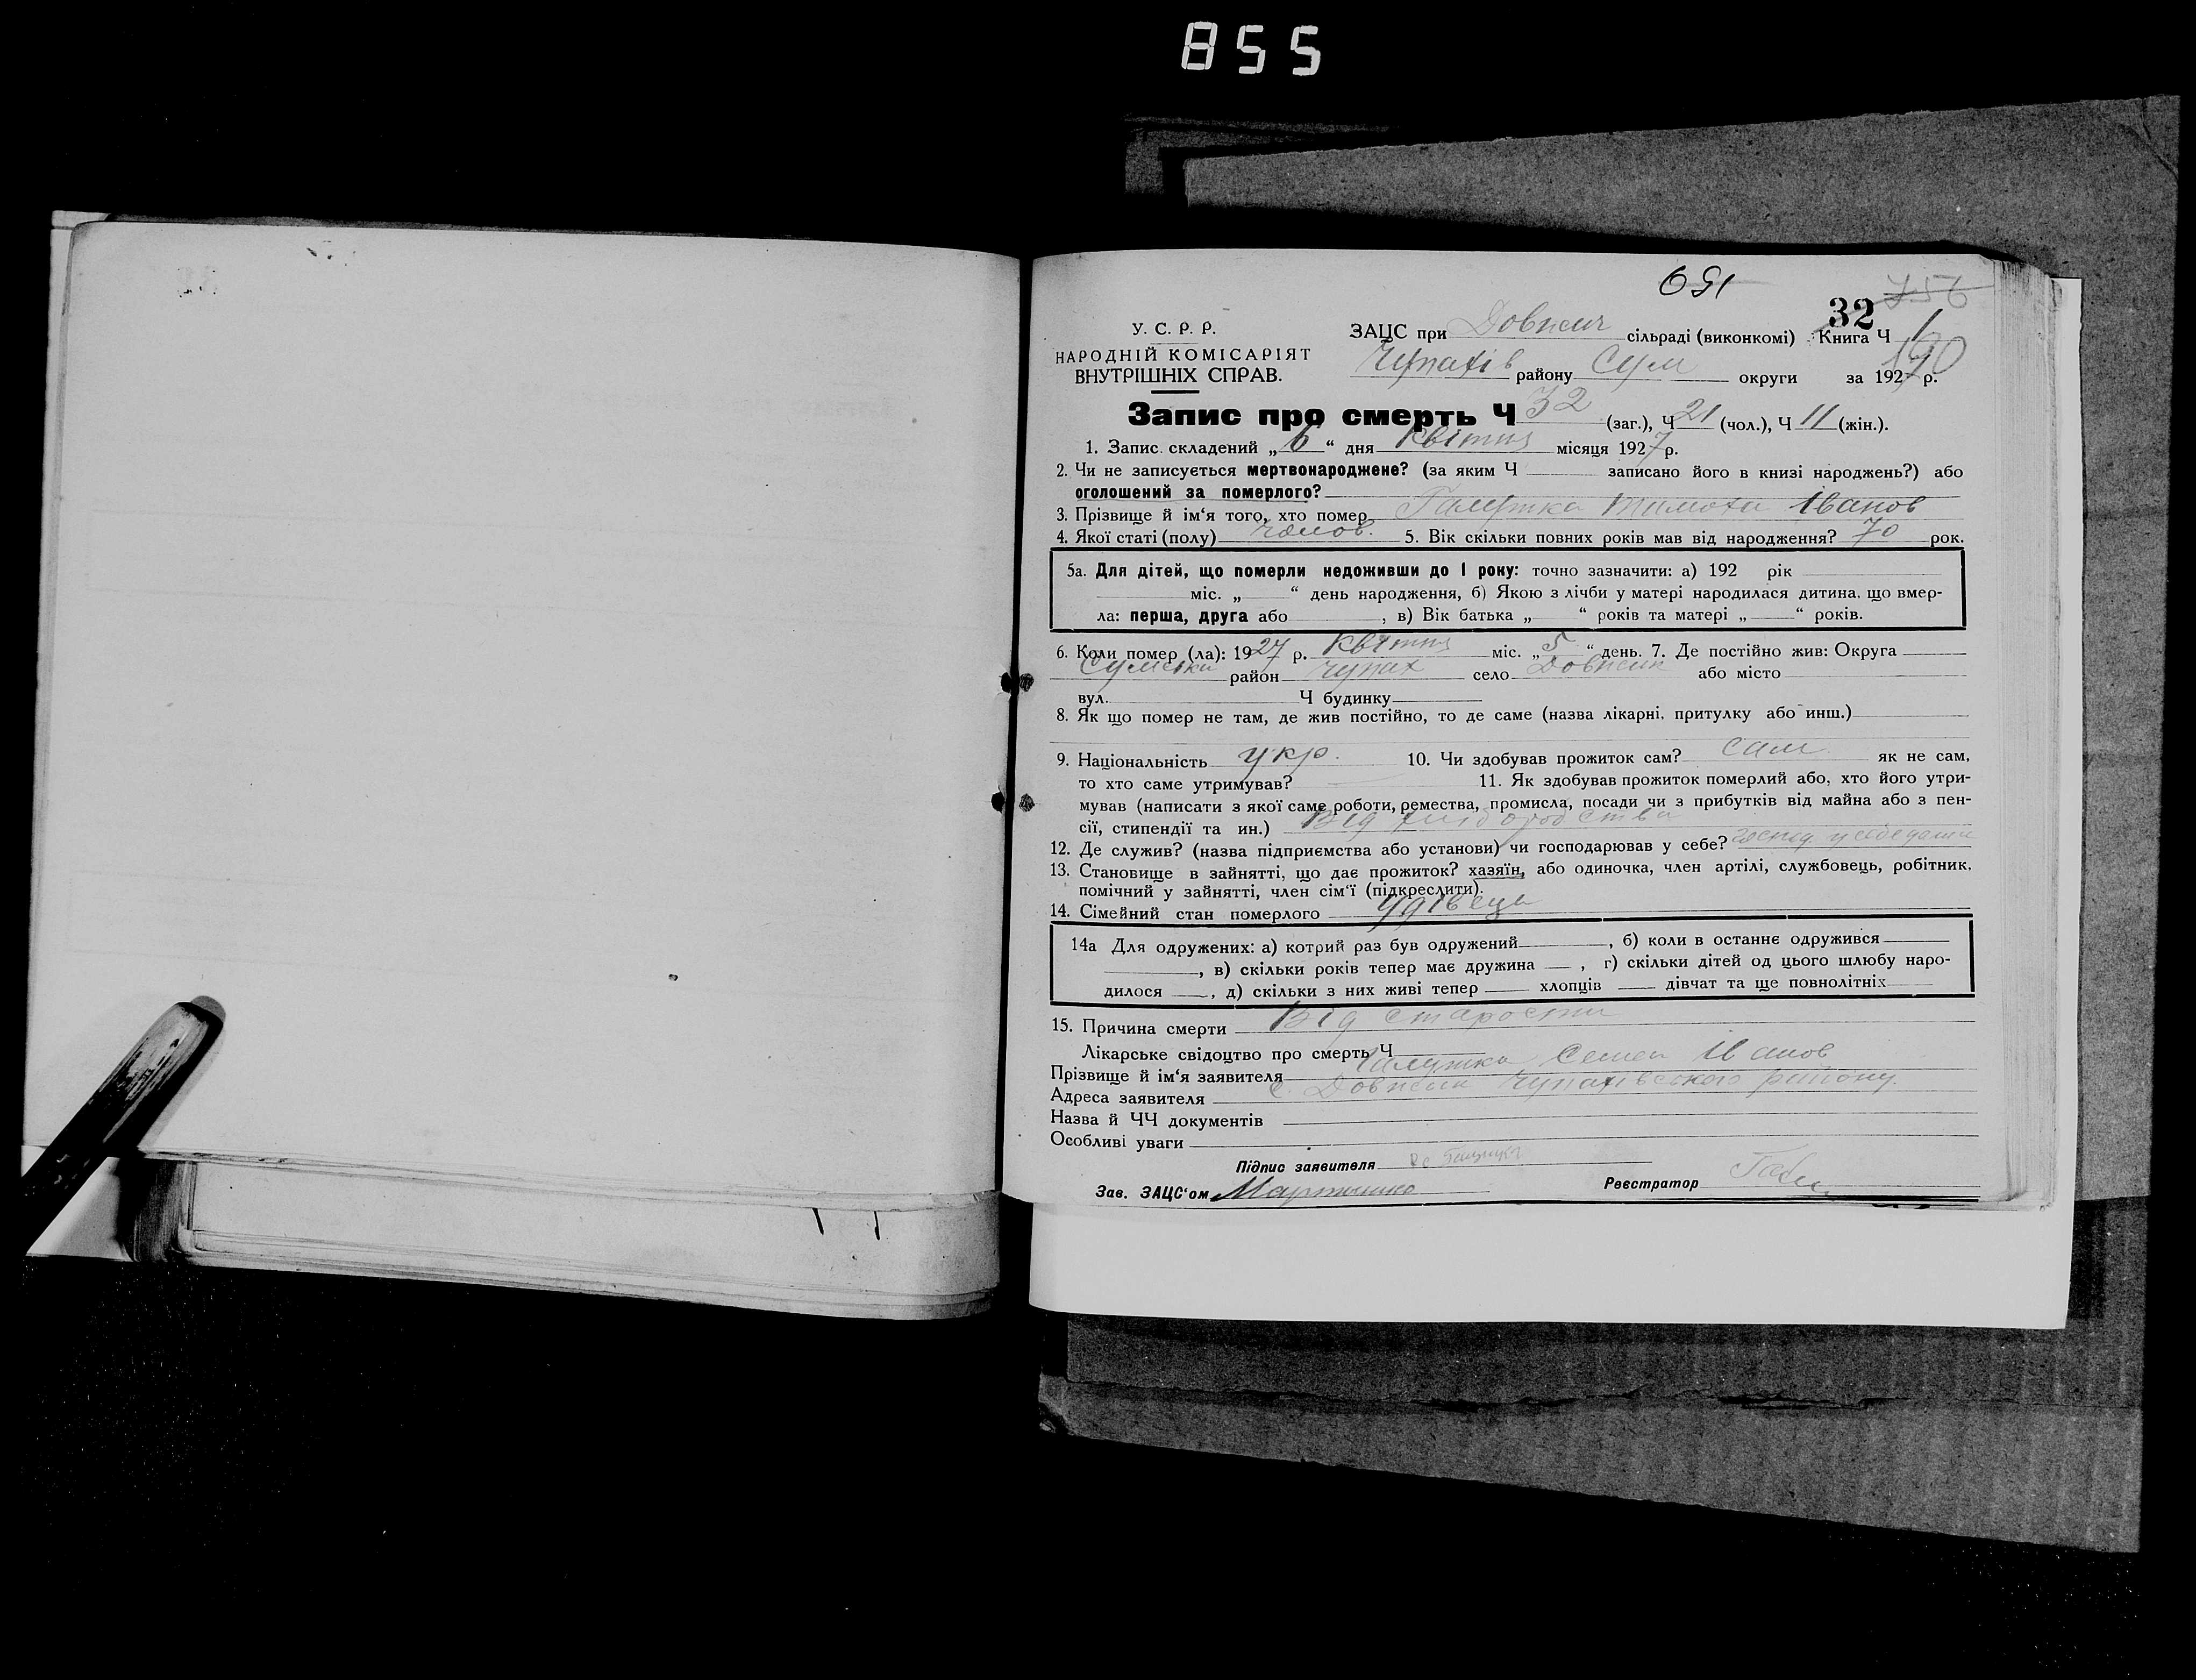 855
691
32 756
У. С. Р. Р.
НАРОДНІЙ КОМІСАРІЯТ
ВНУТРІШНІХ СПРАВ.
ЗАЦС при Довжич сільраді (виконкомі) Книга Ч 1
Чупахів району Сум округи за 1927 р. 190
Запис про смерть Ч 32 (заг.), Ч 21 (чол.), Ч 11 (жін.).
1. Запис складений „6“ дня квітня місяця 1927 р.
2. Чи не записується мертвонароджене? (за яким Ч записано його в книзі народжень?) або
оголошений за померлого?
3. Прізвище й ім‘я того, хто помер Галушка Тимоха Іванов
4. Якої статі (полу) чолов. 5. Вік скільки повних років мав від народження? 70 рок.
5а. Для дітей, що померли недоживши до 1 року: точно зазначити: а) 192 рік
міс. „ “ день народження, б) Якою з лічби у матері народилася дитина, що вмер-
ла: перша, друга або , в) Вік батька „ “ років та матері „ “ років.
6. Коли помер (ла): 1927 р. Квітня міс. „5“ день. 7. Де постійно жив: Округа
Сумська район Чупах село Довжик або місто
вул. Ч будинку
8. Як що помер не там, де жив постійно, то де саме (назва лікарні, притулку або инш.)
9. Національність укр. 10. Чи здобував прожиток сам? сам як не сам,
то хто саме утримував? 11. Як здобував прожиток померлий або, хто його утри-
мував (написати з якої саме роботи, ремества, промисла, посади чи з прибутків від майна або з пен-
сії, стипендії та ин.) Від хлібороб ства
12. Де служив? (назва підприємства або установи) чи господарював у себе? господ. у себе дома
13. Становище в зайнятті, що дає прожиток? хазяїн, або одиночка, член артілі, службовець, робітник,
помічний у зайнятті, член сім‘ї (підкреслити).
14. Сімейний стан померлого Удівець
14а Для одружених: а) котрий раз був одружений , б) коли в останнє одружився
, в) скільки років тепер має дружина , г) скільки дітей од цього шлюбу наро-
дилося , д) скільки з них живі тепер хлопців дівчат та ще повнолітніх
15. Причина смерти Від старости
Лікарське свідоцтво про смерть Ч
Прізвище й ім‘я заявителя Галушка Семен Іванов
Адреса заявителя с. Довжик Чупахівського району.
Назва й ЧЧ документів
Особливі уваги
Підпис заявителя Галушка
Зав. ЗАЦС‘ом Мартиненко Реєстратор